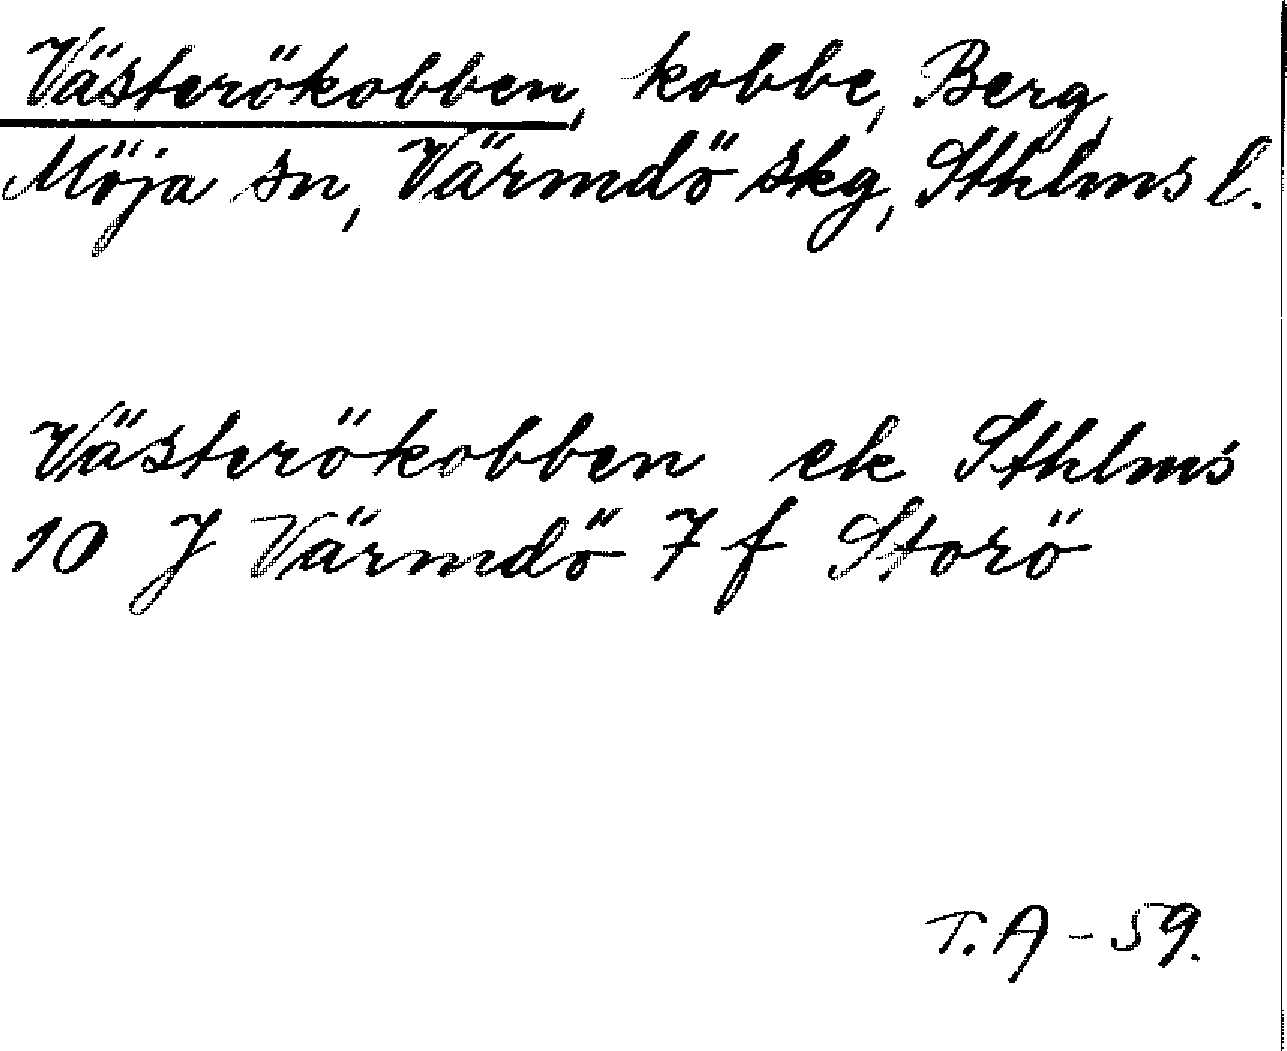 Västerökobben, kobbe, Berg,
Möja sn, Värmdö skg, Sthlms l.
Västerökobben ek Sthlms
10 J Värmdö 7 f Storö
T.A - 59.